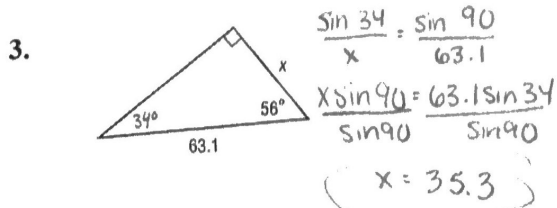 3.
34°
56°
x
63.1
sin 34 / x = sin 90 / 63.1
x sin 90 / sin 90 = 63.1 sin 34 / sin 90
x = 35.3